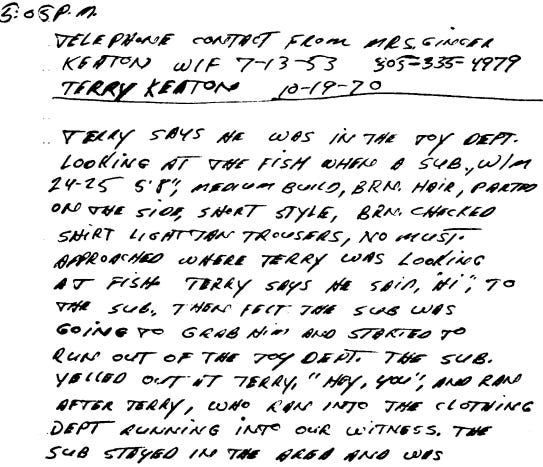 5:05 P.M.
TELEPHONE CONTACT FROM MRS. GINGER
KEATON W/F 7-13-53 305-335-4979
TERRY KEATON 10-19-70
TERRY SAYS HE WAS IN THE TOY DEPT.
LOOKING AT THE FISH WHEN A SUB., W/M
24-25 5'8", MEDIUM BUILD, BRN. HAIR, PARTED
ON THE SIDE, SHORT STYLE, BRN. CHECKED
SHIRT LIGHT TAN TROUSERS, NO MUST.
APPROACHED WHERE TERRY WAS LOOKING
AT FISH TERRY SAYS HE SAID, "HI", TO
THE SUB., THEN FELT THE SUB WAS
GOING TO GRAB HIM AND STARTED TO
RUN OUT OF THE TOY DEPT. THE SUB.
YELLED OUT AT TERRY, "HEY, YOU", AND RAN
AFTER TERRY, WHO RAN INTO THE CLOTHING
DEPT RUNNING INTO OUR WITNESS. THE
SUB STAYED IN THE AREA AND WAS